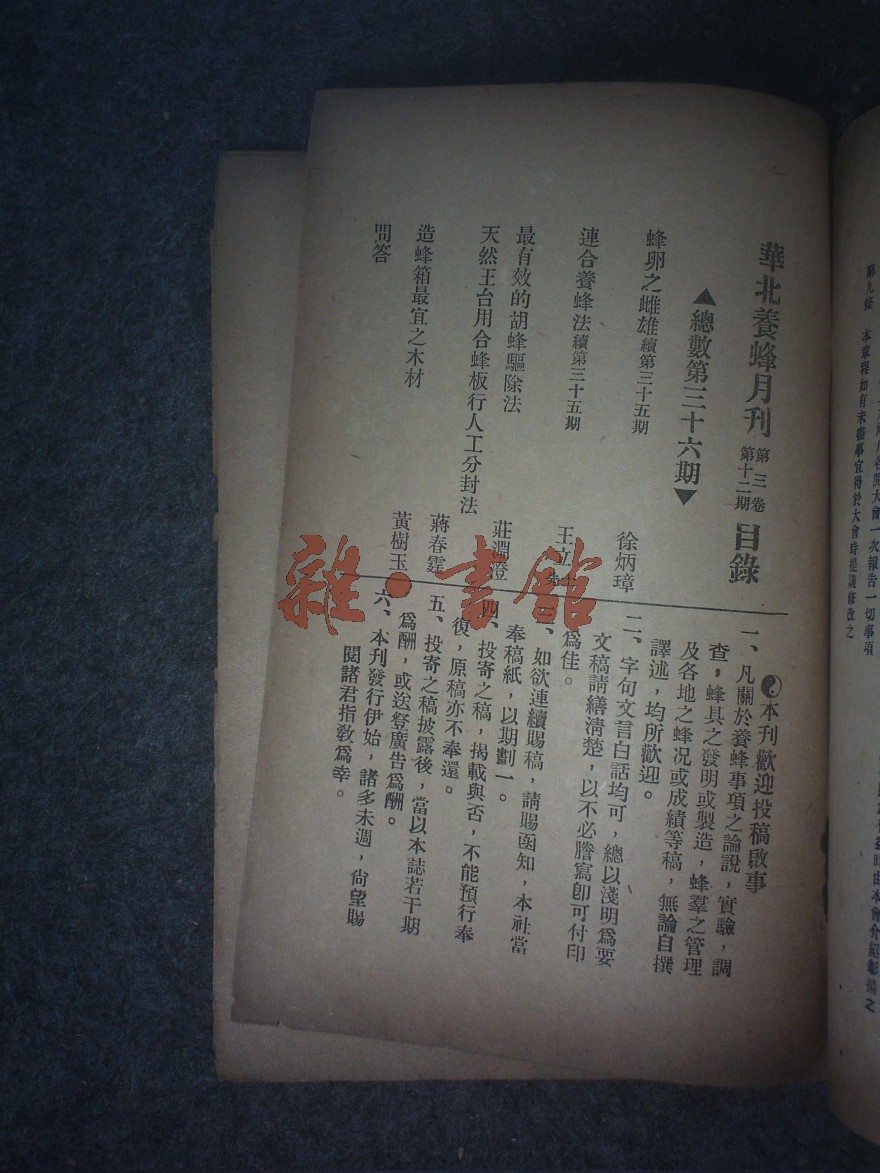 華北養蜂月刊 第三卷 第十二期 目錄
▲總數第三十六期▼
蜂卵之雌雄 續第三十五期 徐炳璋
連合養蜂法 續第三十五期 王立
最有效的胡蜂驅除法 莊澗澄
天然王台用合蜂板行人工分封法 蔣春霆
造蜂箱最宜之木材 黃樹玉
問答
本刊歡迎投稿啟事
一、凡關於養蜂事項之論說，實驗，調
查，蜂具之發明或製造，蜂羣之管理
及各地之蜂况或成績等稿，無論自撰
譯述，均所歡迎。
二、字句文言白話均可，總以淺明爲要
文稿請繕清楚，以不必謄寫卽可付印
爲佳。
三、如欲連續賜稿，請賜函知，本社當
奉稿紙，以期劃一。
四、投寄之稿，揭載與否，不能預行奉
復，原稿亦不奉還。
五、投寄之稿披露後，當以本誌若干期
爲酬，或送登廣告爲酬。
六、本刊發行伊始，諸多未週，尙望賜
閱諸君指敎爲幸。
開大會一次報告一切事項
第九條 本章程如有未盡事宜得於大會時提議修改之
時由本會介紹
雜·書館